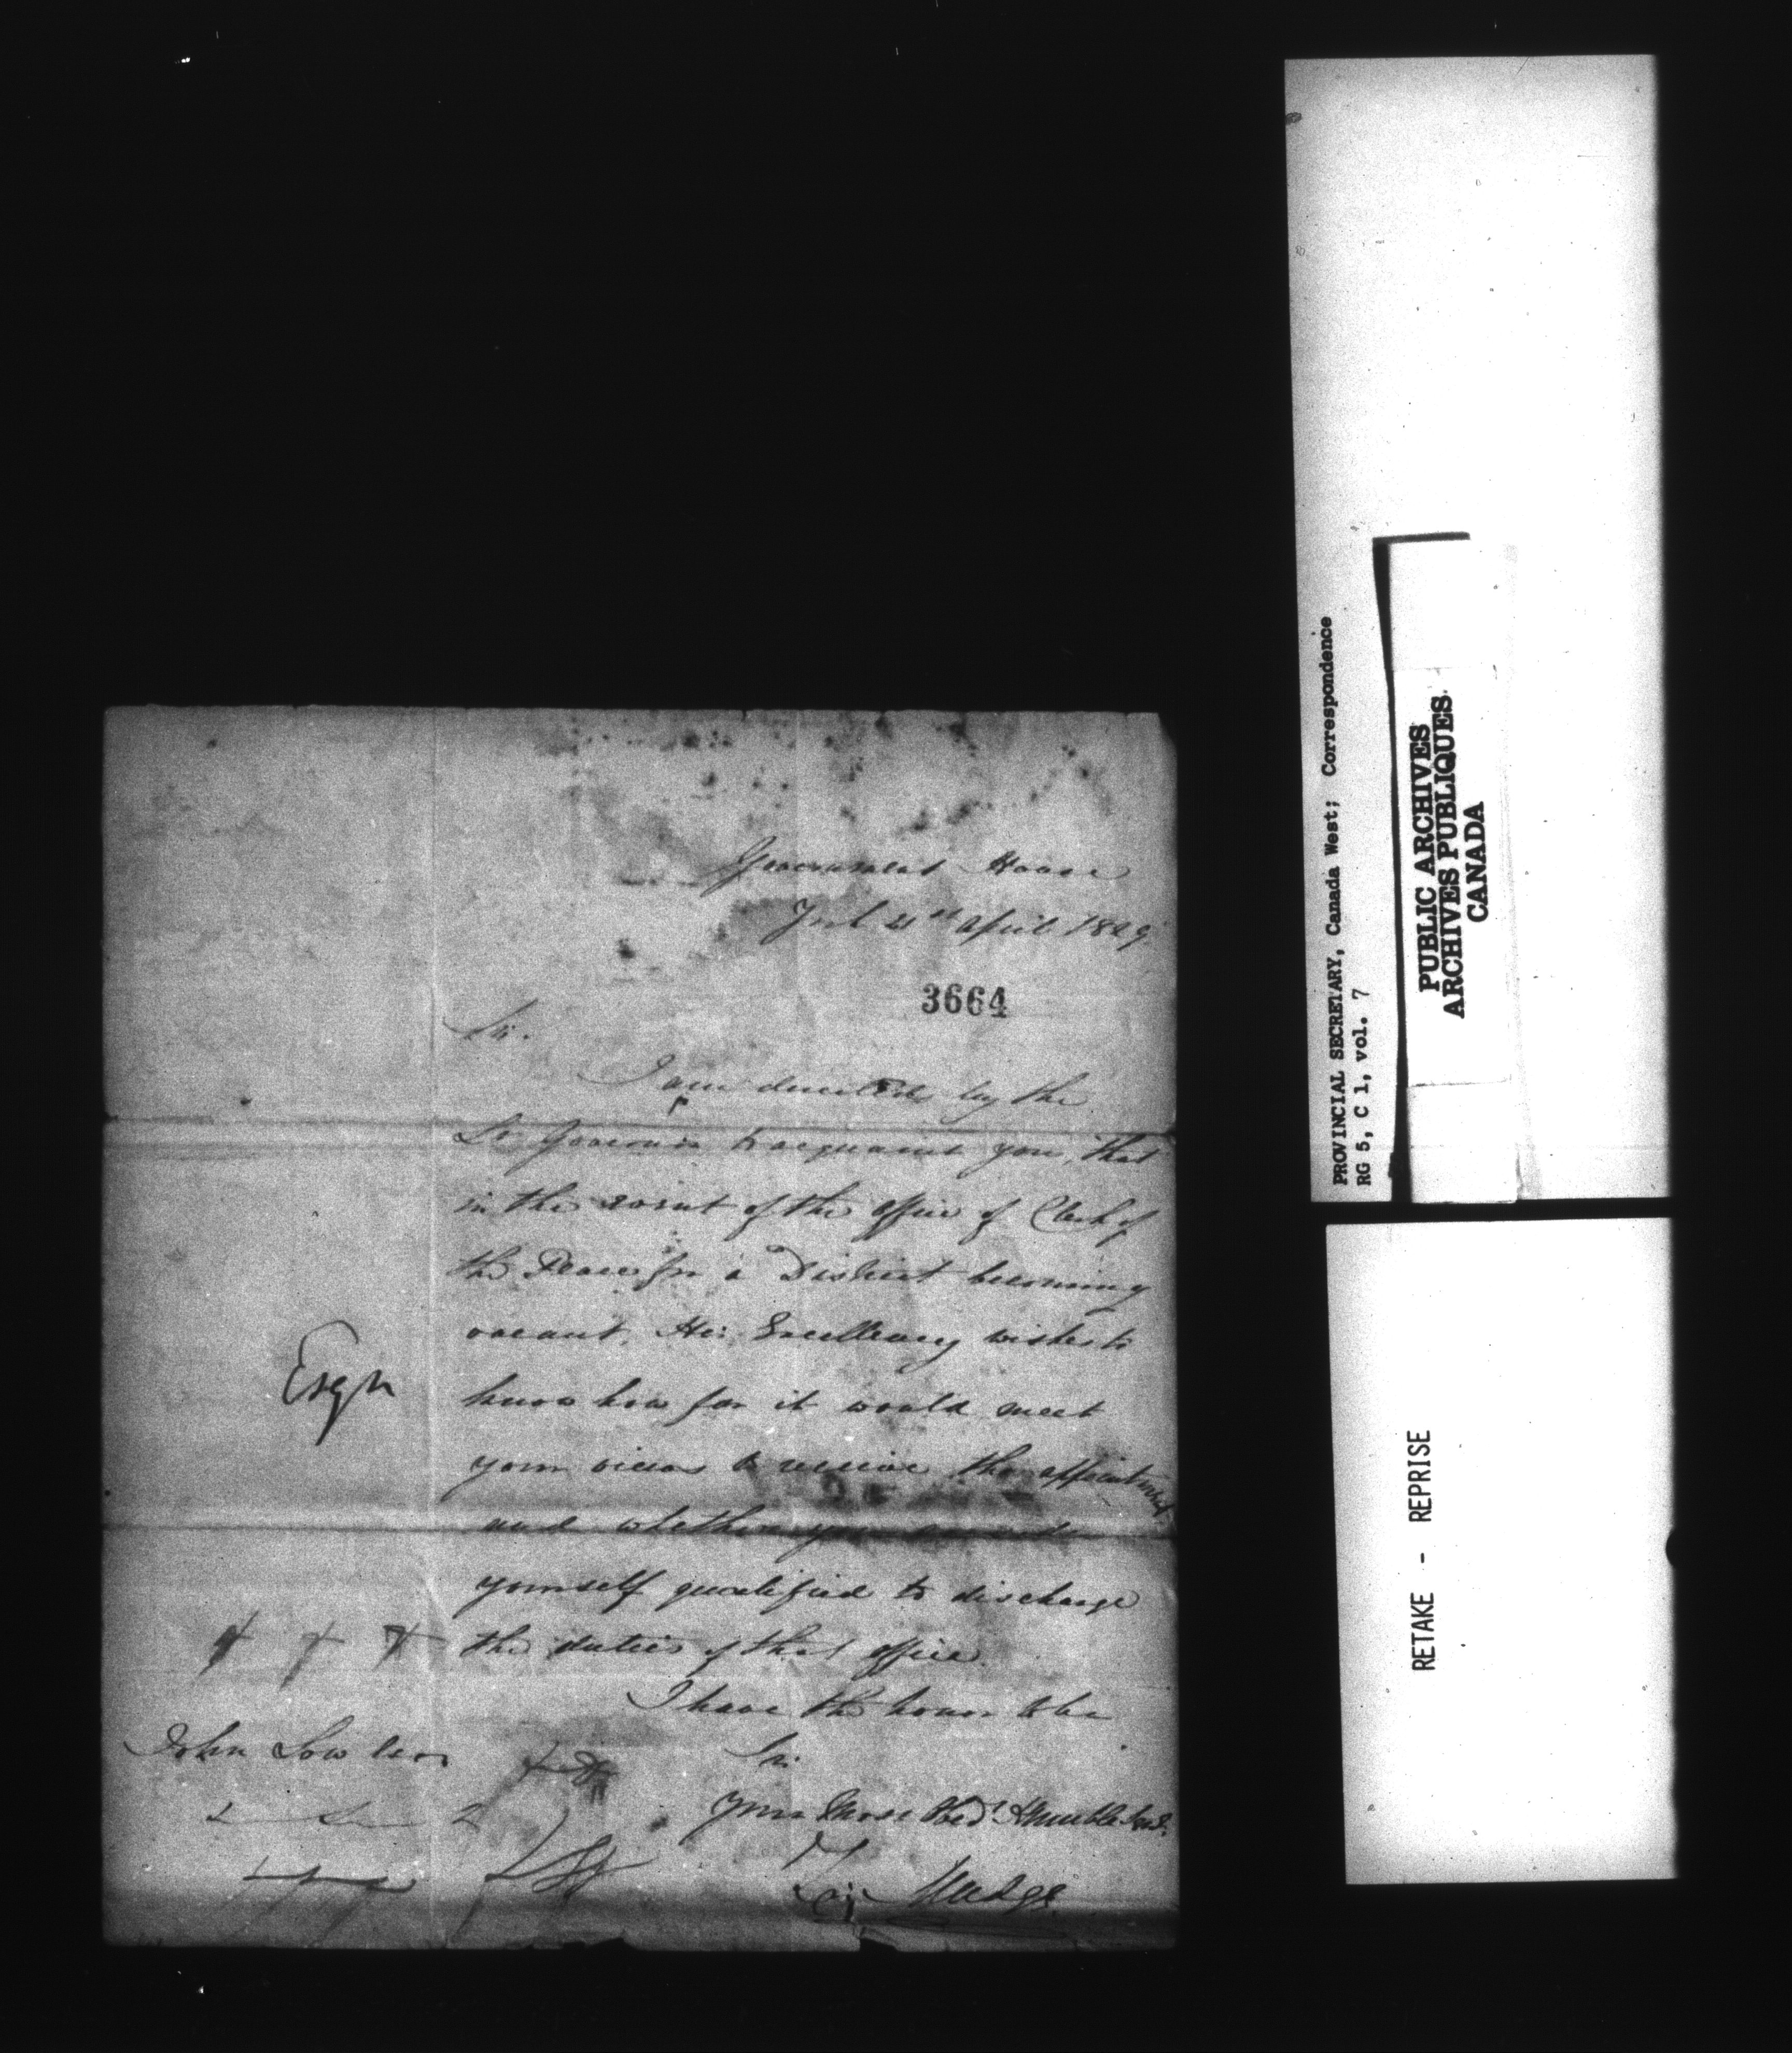 Government House
York 21st April 1829
3664
Sir.
I am directed by the
Lt Governor to acquaint you, that
in the event of the office of Clerk of
the Peace for a District becoming
vacant, His Excellency wishes to
know how far it would meet
your views to receive the appointment
and whether you
yourself qualified to discharge
the duties of that office.
I have the honor to be
Sir
Your Most Obed. Humble Servt.
Z Mudge
Esqr
John
PROVINCIAL SECRETARY, Canada West; Correspondence
RG 5, C 1, vol. 7
PUBLIC ARCHIVES
ARCHIVES PUBLIQUES
CANADA
RETAKE - REPRISE